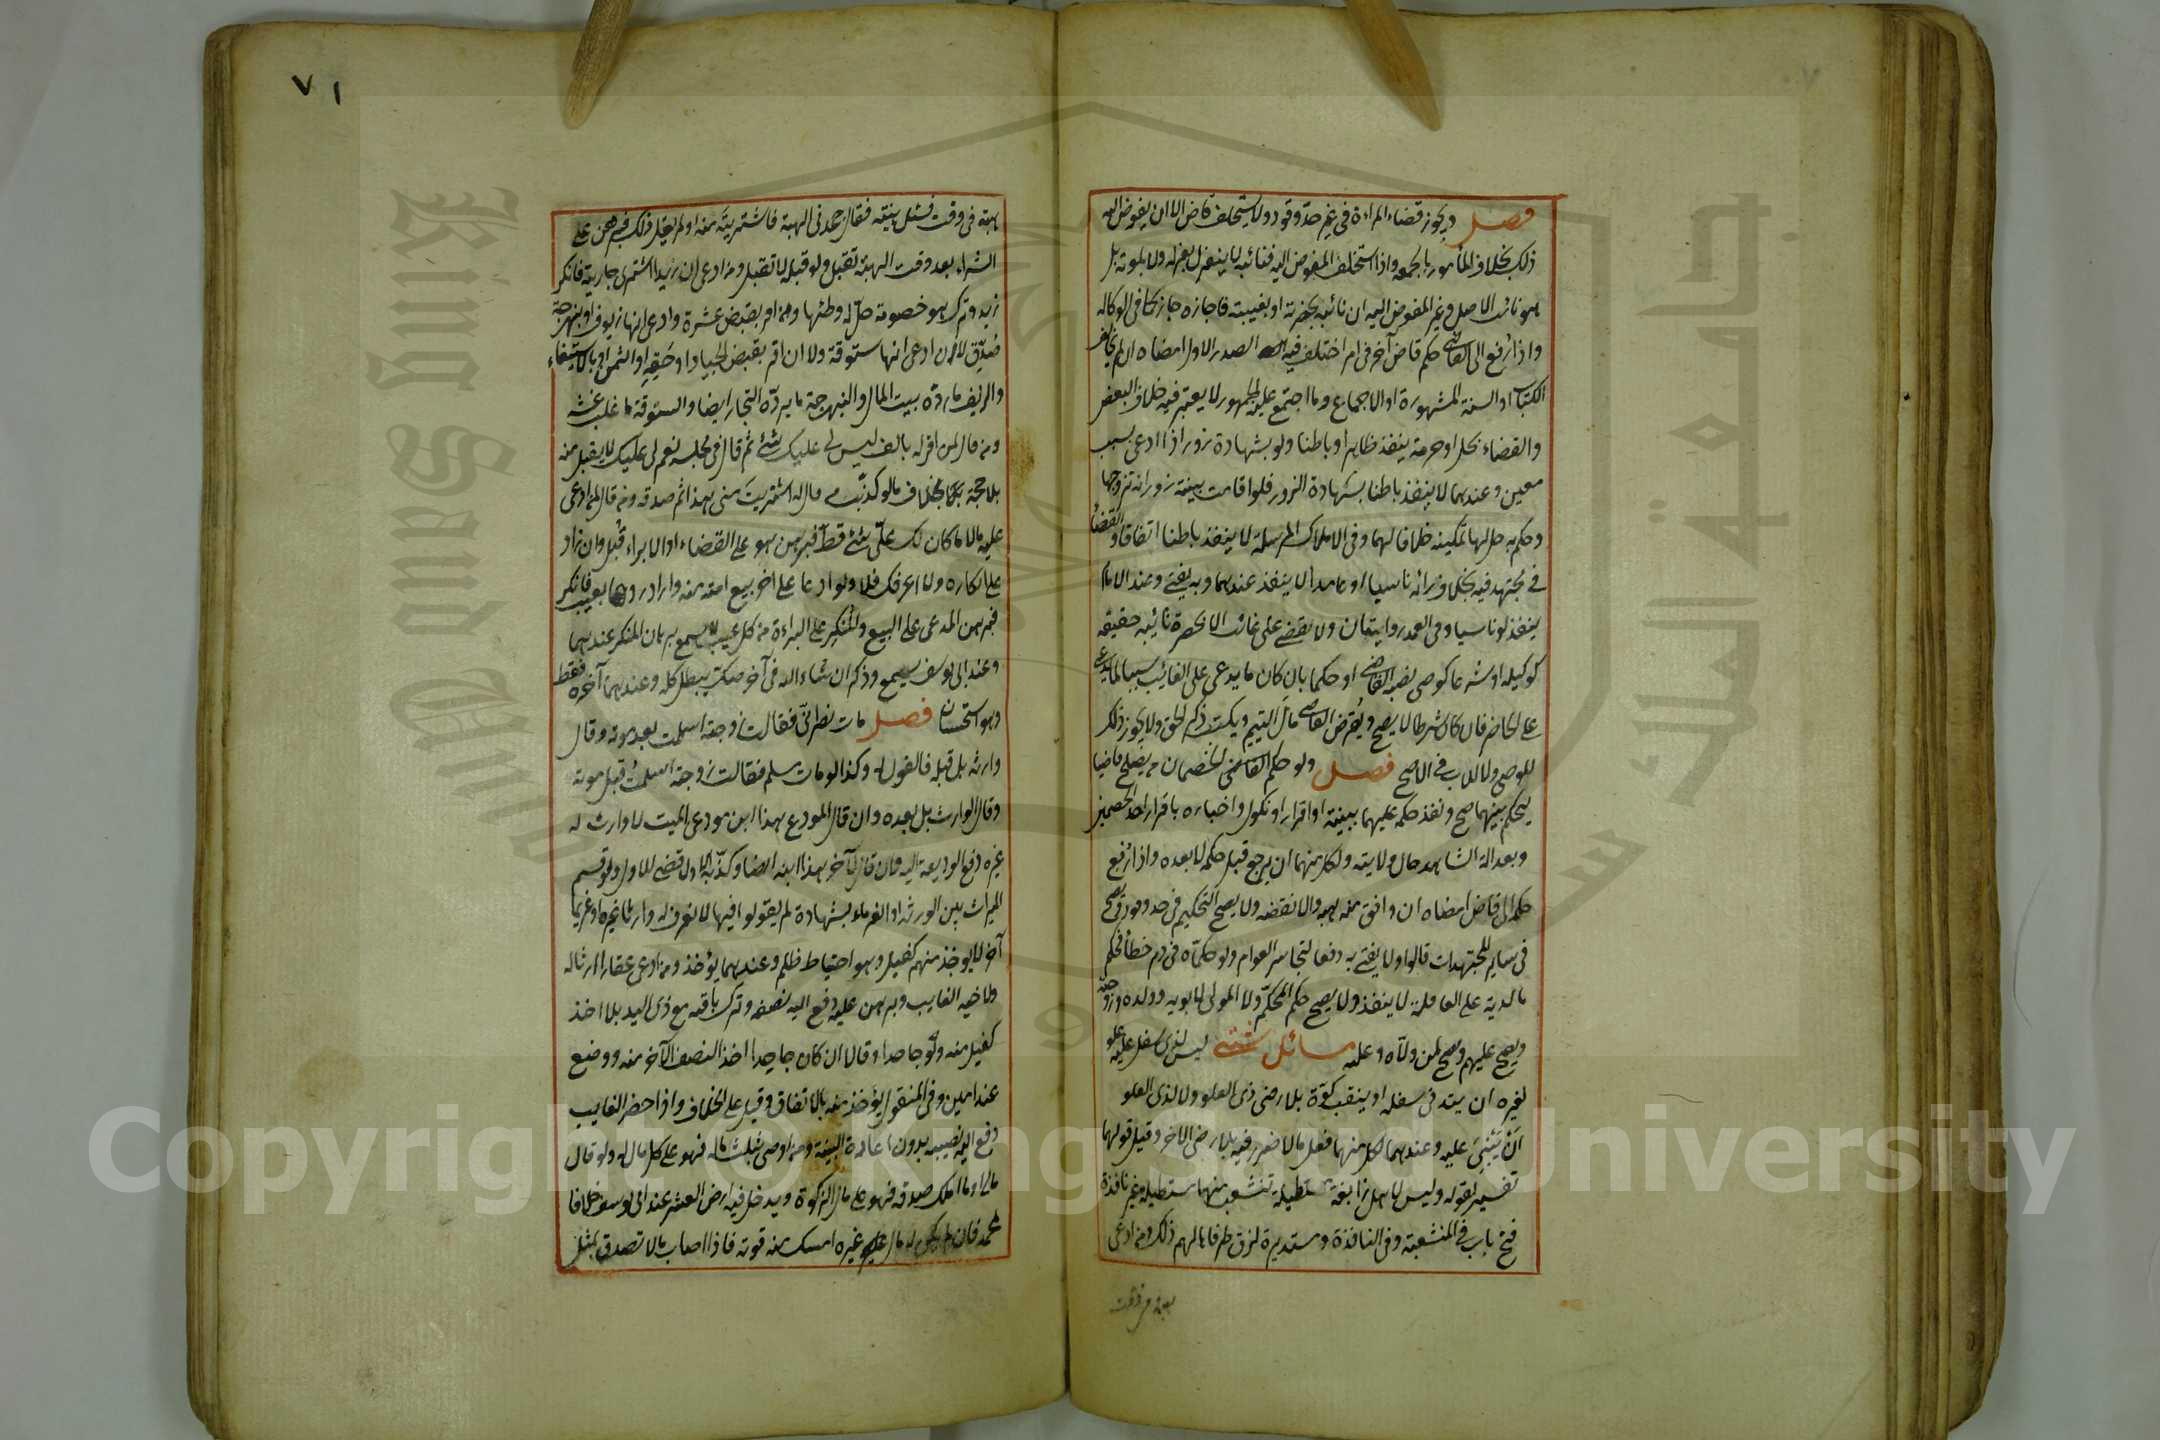 فصل ويجوز قضاء المراءة في غير حد وقود ولا يستخلف قاض الا ان يفوض اليه
ذلك بخلاف المأمور بالجمعة واذا استخلف المفوض اليه فنائبه لا ينعزل بعزله ولا بموته بل
هو نائب الاصل وغير المفوض اليه ان نائبه بحضرته او بغيبته فاجازه جاز كما في الوكاله
واذا رفع الى القاضي حكم قاض آخر في امر اختلف فيه الصدر الاول امضاه ان لم يخالف
الكتاب او السنة المشهورة او الاجماع وما اجتمع عليه الجمهور لا يعتبر فيه خلاف البعض
والقضاء بحل او حرمة ينفذ ظاهرا وباطنا ولو بشهادة زور اذا ادعى بسبب
معين وعندهما لا ينفذ باطنا بشهادة الزور فلو اقامت بينة زور انه تزوجها
وحكم به حل لها تمكينه خلافا لهما وفى الاملاك المرسلة لا ينفذ باطنا اتفاقا والقضاء
في مجتهد فيه بخلاف رائه ناسيا او عامدا لا ينفذ عندهما وبه يفتى وعند الامام
ينفذ لو ناسيا وفى العمد روايتان ولا يقضى على غائب الا بحضرة نائبه حقيقة
كوكيله او شرعا كوصى نصبه القاضى او حكما بان كان ما يدعى على الغائب سببا لما يدعى
على الحاضر فان كان شرطا لا يصح ويقرض القاضى مال اليتيم ويكتب ذكر الحق ولا يجوز ذلك
للوصى ولا للاب في الاصح فصل ولو حكم الخصمان من يصلح قاضيا
ليحكم بينهما صح ونفذ حكمه عليهما ببينة او اقرار او نكول واخباره باقرار احد الخصمين
وبعدالة الشاهد حال ولايته ولكل منهما ان يرجع قبل حكمه لا بعده واذا رفع
حكمه الى قاض امضاه ان وافق مذهبه والا نقضه ولا يصح التحكيم في حد وقود ويصح
في سایر المجتهدات قالوا ولا يفتى به دفعا لتجاسر العوام ولو حكماه في دم خطأ فحكم
بالدية على العاقلة لا ينفذ ولا يصح حكم المحكم ولا المولى لابويه وولده وزوجته
ويصح عليهم ويصح لمن ولاه وعليه مسائل شتى ليس لذى سفل عليه علو
لغيره ان يتد في سفله او ينقب كوة بلا رضى ذى العلو ولا لذى العلو
ان يبنى عليه وعندهما لكل منهما فعل ما لا ضرر فيه بلا رضى الاخر وقيل قولهما
تفسير لقوله وليس لاهل زايغة مستطيلة تنشعب منها مستطيلة غير نافذة
فتح باب في المنشعبة وفى النافذة ومستديرة لزق طرفاها لهم ذلك ومن ادعى
٧١
هبة في وقت فسئل بينته فقال جحدنى الهبة فاشتريته منه او لم يقل ذلك فبرهن على
الشراء بعد وقت الهبة تقبل ولو قبله لا تقبل ومن ادعى ان زيدا اشترى جاريته فانكر
زيد وترك هو خصومته حل له وطئها ومن اقر بقبض عشرة وادعى انها زيوف او بنهرجة
صدق لا ان ادعى انها ستوقة ولا ان اقر بقبض الجياد او حقه او الثمن او بالاستيفاء
والزيف ما رده بيت المال والنبهرجة ما يرده التجار ايضا والستوقة ما غلب غشه
ومن قال لمن اقر له بالف ليس لى عليك شئ ثم قال في مجلسه نعم لى عليك لا يقبل منه
بلا حجة بخلاف ما لو كذب من قال له اشتريت منى هذا ثم صدقه ومن قال لمن ادعى
عليه مالا ما كان لك على شئ قط فبرهن هو على القضاء او الابراء قبل وان زاد
على انكاره ولا اعرفك فلا ولو ادعا على اخر بيع امته منه واراد ردها بعيب فانكر
فبرهن المدعى على البيع والمنكر على البراءة من كل عيب لا يسمع برهان المنكر عندهما
وعند ابى يوسف يسمع وذكر ان شاء الله في آخر صك يبطل كله وعندهما آخره فقط
وهو استحسان فصل مات نصرانى فقالت زوجته اسلمت بعد موته وقال
وارثه بل قبله فالقول له وكذا لو مات مسلم فقالت زوجته اسلمت قبل موته
وقال الوارث بل بعده وان قال المودع هذا ابن مودعى الميت لا وارث له
غيره دفع الوديعة اليه وان قال لآخر هذا ابنه ايضا وكذبه الاول قضى للاول ولو قسم
الميراث بين الورثه او الغرماء بشهادة لم يقولوا فيها لا نعرف له وارثا غيره او غريما
آخر لا يوخذ منهم كفيل وهو احتياط ظلم وعندهما يؤخذ ومن ادعى عقارا ارثا له
ولاخيه الغايب وبرهن عليه دفع اليه نصفه وترك باقيه مع ذى اليد بلا اخذ
كفيل منه ولو جاحدا وقالا ان كان جاحدا اخذ النصف الآخر منه ووضع
عند امين وفى المنقول يؤخذ منه بالاتفاق وقيل على الخلاف واذا حضر الغايب
دفع اليه نصيبه بدون اعادة البينة ومن اوصى بثلث ماله فهو على كل مال له ولو قال
مالى او ما املك صدقة فهو على مال الزكوة ويدخل فيه ارض العشر عند ابى يوسف خلافا
لمحمد فان لم يكن له مال غيره امسك منه قوته فاذا اصاب مالا تصدق بمثل
Copyright © King Saud University
King Saud University
جامعة الملك سعود